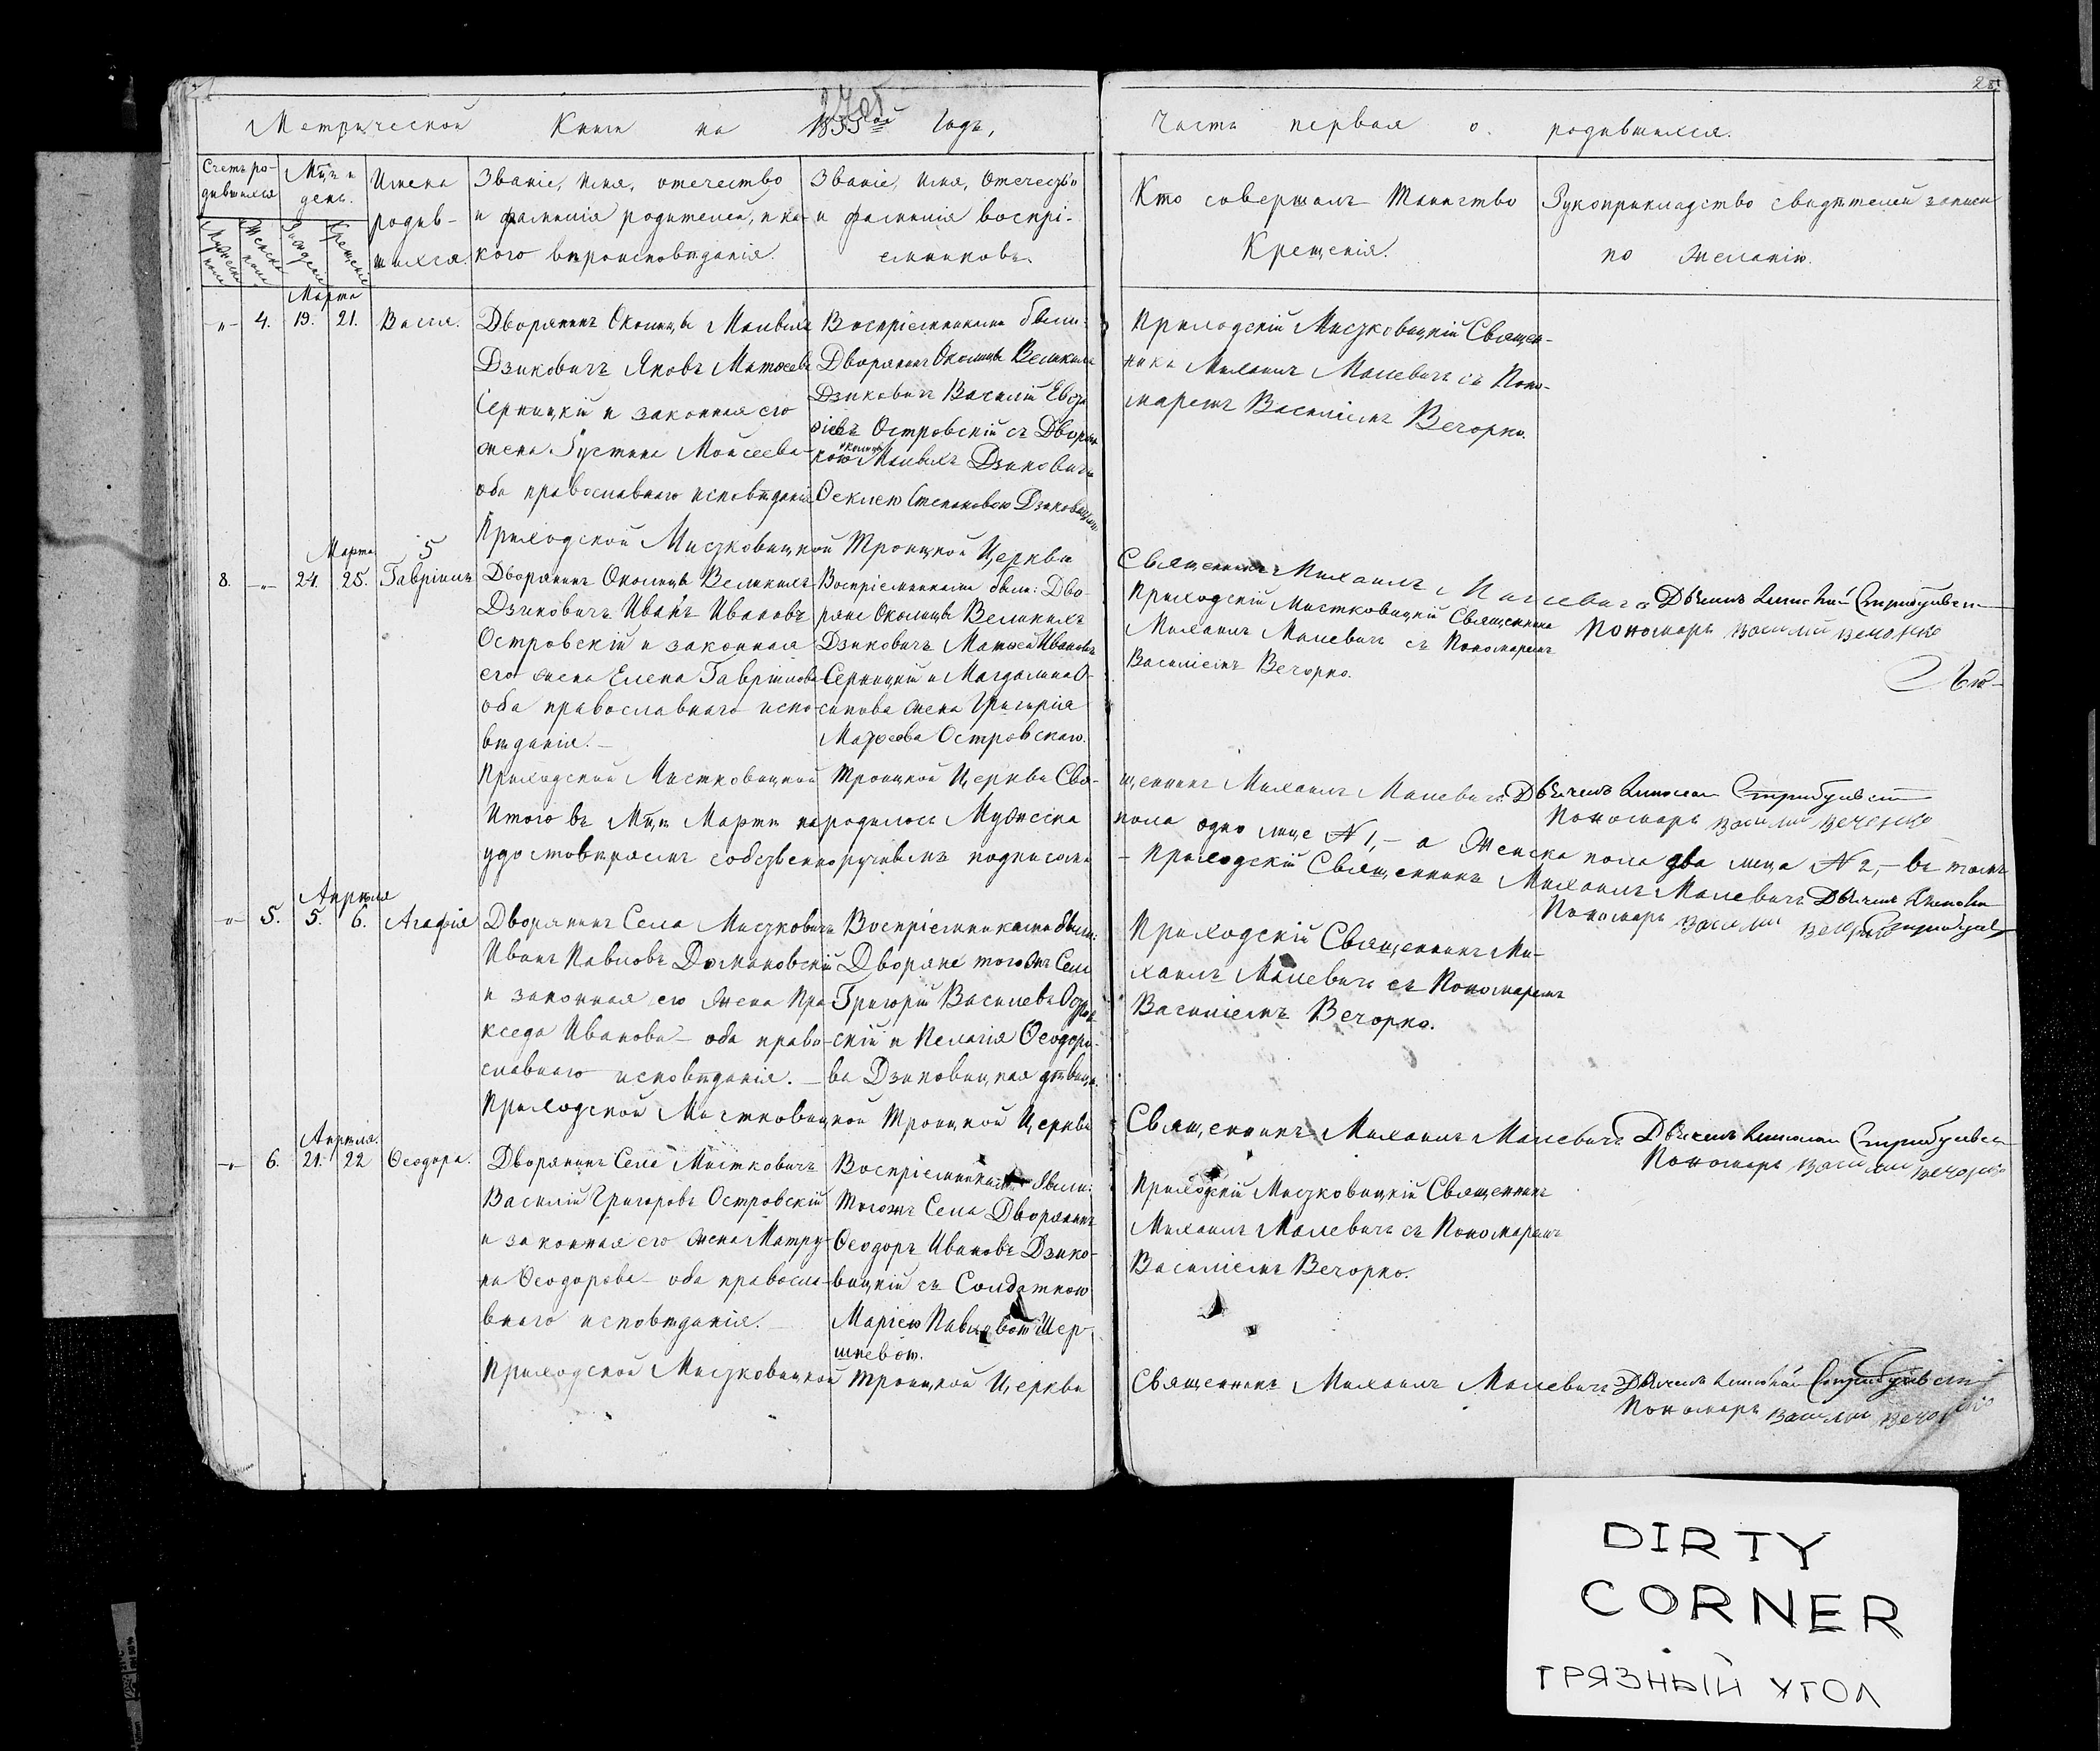 Метрической Книги на 1855ой Годъ,
Часть первая о родившихся.
28
Счетъ ро-
дившихся
Мцъ и
день.
Имена
родив-
шихся.
Званіе, имя, отечество
и фамилія родителей, и ка-
кого вѣроисповѣданія.
Званіе, имя, отечество
и фамилія воспрі-
емниковъ.
Кто совершалъ Таинство
Крещенія.
Рукоприкладство свидѣтелей записи
по желанію.
Марта
-"- 4. 19. 21. Васса.
Дворянинъ Околицы Малыхъ
Дзиковичъ Яковъ Матѳеевъ
Серницкій и законная его
жена Іустина Моисеева
оба православнаго исповѣданія
Воспріемниками были:
Дворянинъ Околицы Великихъ
Дзиковичъ Василій
Островскій съ Дворян-
кою околицы Малыхъ Дзиковичъ
Ѳеклею Степановою
Приходскій Мисзковицкій Священ-
никъ Михаилъ Малевичъ съ Поно-
маремъ Василіемъ Вечорко.
Приходской Мисзковицкой Троицкой Церкви
Священникъ Михаилъ Малевичъ
Пономарь Василій Вечорко
Марта 5
8. -"- 24. 25. Гавріилъ
Дворянинъ Околицы Великихъ
Дзиковичъ Иванъ Ивановъ
Островскій и законная
его жена Елена Гавріилова
оба православнаго испо-
вѣданія.
Воспріемниками были: Дво-
ряне Околицы Великихъ
Дзиковичъ Матѳей Ивановъ
Серницкій и Магдалина О-
сипова жена Григорія
Матѳеева Островскаго.
Приходскій Мистковицкій Священникъ
Михаилъ Малевичъ съ Пономаремъ
Василіемъ Вечорко.
Приходской Мистковицкой Троицкой Церкви Свя-
щенникъ Михаилъ Малевичъ
Пономарь Василій Вечорко
Итого въ Мцѣ Мартѣ народилось Мужеска
пола одно лице № 1,- а Женска пола два лица № 2,- въ томъ
удостовѣряемъ собственноручнымъ подписомъ
- Приходскій Священникъ Михаилъ Малевичъ
Пономарь Василій Вечорко
Апрѣля
-"- 5. 5. 6. Агафія
Дворянинъ Села Мисзковичъ
Иванъ Павловъ Домановскій
и законная его жена Пра-
кседа Иванова - оба право-
славнаго исповѣданія. -
Воспріемниками были:
Дворяне того жъ Села
Григорій Василевъ Остров-
скій и Пелагія Ѳеодоро-
ва Дзиковицкая дѣвица.
Приходскій Священникъ Ми-
хаилъ Малевичъ съ Пономаремъ
Василіемъ Вечорко.
Приходской Мистковицкой Троицкой Церкви
Священникъ Михаилъ Малевичъ
Пономарь Василій Вечорко
Апрѣля.
-"- 6. 21. 22 Ѳеодора.
Дворянинъ Села Мистковичъ
Василій Григоровъ Островскій
и законная его жена Матру-
на Ѳеодорова - оба правосла-
внаго исповѣданія. -
Воспріемниками были:
Тогожъ Села Дворянинъ
Ѳеодоръ Ивановъ Дзико-
вицкій съ Солдаткою
Маріею Павловою Шер-
шневою.
Приходскій Мисзковицкій Священникъ
Михаилъ Малевичъ съ Пономаремъ
Василіемъ Вечорко.
Приходской Мисзковицкой Троицкой Церкви
Священникъ Михаилъ Малевичъ
Пономарь Василій Вечорко
DIRTY
CORNER
ГРЯЗНЫЙ УГОЛ